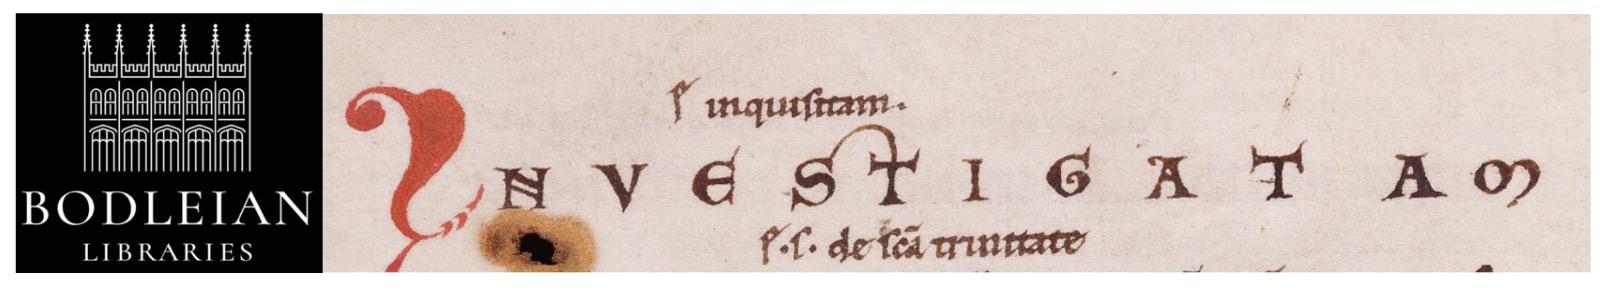 BODLEIAN
LIBRARIES
ꝑ inquisitam.
INVESTIGATAM
.s. de sc̄a trinitate